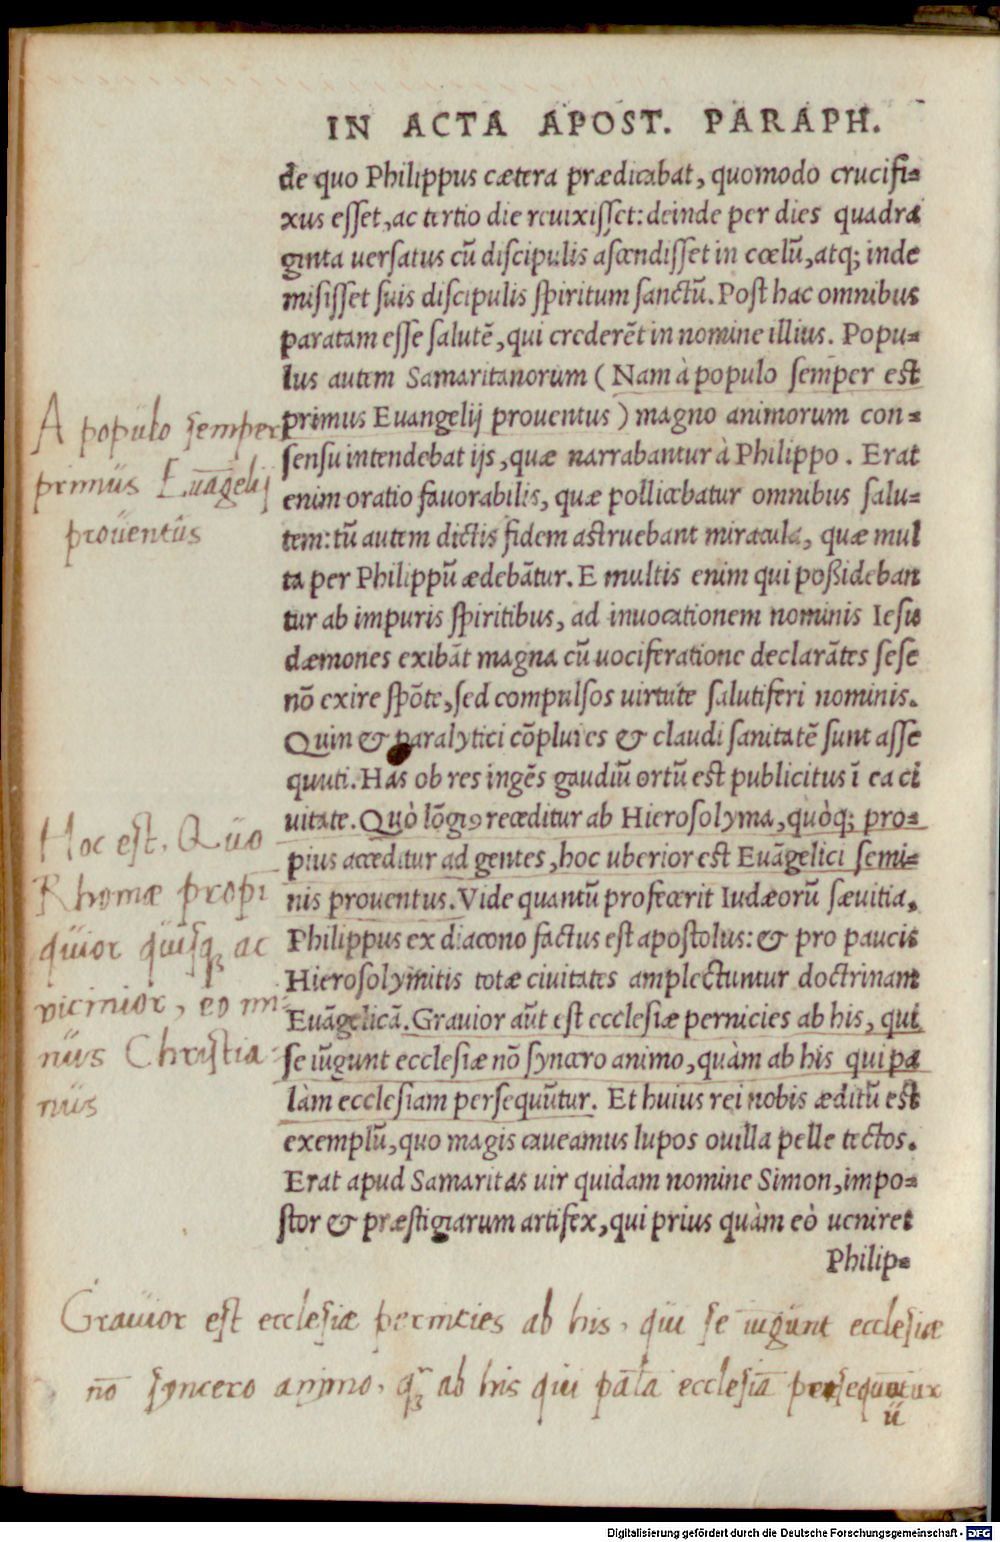 IN ACTA APOST. PARAPH.
de quo Philippus cætera prædicabat, quomodo crucifi=
xus esset, ac tertio die reuixisset: deinde per dies quadra
ginta uersatus cũ discipulis ascendisset in cœlũ, atq; inde
misisset suis discipulis spiritum sanctũ. Post hac omnibus
paratam esse salutẽ, qui crederẽt in nomine illius. Popu=
lus autem Samaritanorum (Nam à populo semper est
primus Euangelij prouentus) magno animorum con=
sensu intendebat ijs, quæ narrabantur à Philippo. Erat
enim oratio fauorabilis, quæ pollicebatur omnibus salu=
tem: tũ autem dictis fidem astruebant miracula, quæ mul
ta per Philippũ ædebãtur. E multis enim qui poßideban
tur ab impuris spiritibus, ad inuocationem nominis Iesu
dæmones exibãt magna cũ uociferatione declarãtes sese
nõ exire spõte, sed compulsos uirtute salutiferi nominis.
Quin & paralytici cõplures & claudi sanitatẽ sunt asse
quuti. Has ob res ingẽs gaudiũ ortũ est publicitus ĩ ea ci
uitate. Quò lõgiꝰ receditur ab Hierosolyma, quòq; pro=
pius acceditur ad gentes, hoc uberior est Euãgelici semi=
nis prouentus. Vide quantũ profecerit Iudæorũ sæuitia,
Philippus ex diacono factus est apostolus: & pro paucis
Hierosolymitis totæ ciuitates amplectuntur doctrinam
Euãgelicã. Grauior aũt est ecclesiæ pernicies ab his, qui
se iũgunt ecclesiæ nõ syncero animo, quàm ab his qui pa
làm ecclesiam persequũtur. Et huius rei nobis æditũ est
exemplũ, quo magis caueamus lupos ouilla pelle tectos.
Erat apud Samaritas uir quidam nomine Simon, impo=
stor & præstigiarum artifex, qui prius quàm eò ueniret
Philip=
A populo semper
primus Euãgelij
prouentus
Hoc est. Quo
Rhomæ propĩ
quior quisq; ac
vicinior, eo mi-
nus Christia-
nus
Grauior est ecclesiæ pernicies ab his, qui se iũgunt ecclesiæ
nõ syncero animo, q̃ ab his qui palã ecclesiã persequuntur
ü
Digitalisierung gefördert durch die Deutsche Forschungsgemeinschaft - DFG